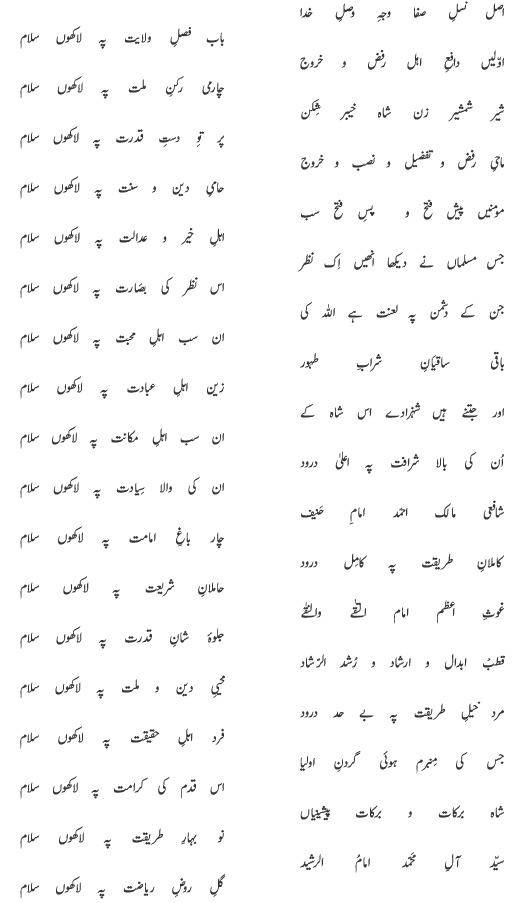 اصل نسلِ صفا وجہِ وصلِ خدا
بابِ فصلِ ولایت پہ لاکھوں سلام
اوّلیں دافعِ اہلِ رفض و خروج
چارمی رکنِ ملت پہ لاکھوں سلام
شیرِ شمشیر زن شاہِ خیبر شِکن
پر توِ دستِ قدرت پہ لاکھوں سلام
ماحیِ رفض و تفضیل و نصب و خروج
حامیِ دین و سنت پہ لاکھوں سلام
مومنیں پیش فتح و پسِ فتح سب
اہلِ خیر و عدالت پہ لاکھوں سلام
جس مسلماں نے دیکھا انھیں اِک نظر
اس نظر کی بصارت پہ لاکھوں سلام
جن کے دشمن پہ لعنت ہے اللہ کی
ان سب اہلِ محبت پہ لاکھوں سلام
باقی ساقیانِ شرابِ طہور
زین اہلِ عبادت پہ لاکھوں سلام
اور جتنے ہیں شہزادے اس شاہ کے
ان سب اہلِ مکانت پہ لاکھوں سلام
اُن کی بالا شرافت پہ اعلیٰ درود
ان کی والا سِیادت پہ لاکھوں سلام
شافعی مالک احمد امامِ حَنیف
چار باغِ امامت پہ لاکھوں سلام
کاملانِ طریقت پہ کامِل درود
حاملانِ شریعت پہ لاکھوں سلام
غوثِ اعظم امام التقٰے والنقٰے
جلوۂ شانِ قدرت پہ لاکھوں سلام
قطبُ ابدال و ارشاد و رُشد الرّشاد
محیِ دین و ملت پہ لاکھوں سلام
مردِ خیلِ طریقت پہ بے حد درود
فردِ اہلِ حقیقت پہ لاکھوں سلام
جس کی مِنبرم ہوئی گردنِ اولیا
اس قدم کی کرامت پہ لاکھوں سلام
شاہ برکات و برکات پیشینیاں
نو بہارِ طریقت پہ لاکھوں سلام
سیّد آلِ محمّد امامُ الرشید
گلِ روضِ ریاضت پہ لاکھوں سلام